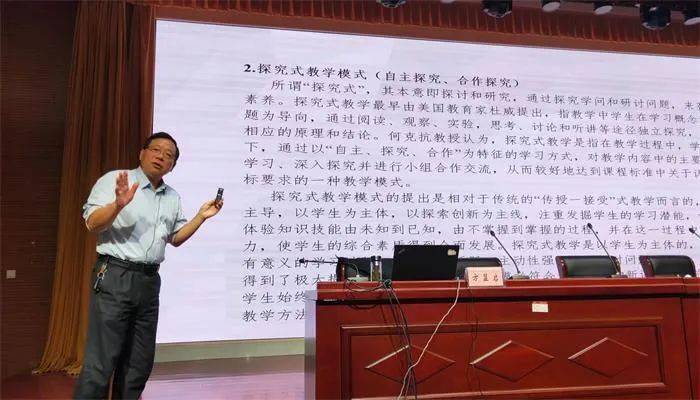 2.探究式教学模式（自主探究、合作探究）
所谓“探究式”，其本意即探讨和研究，通过探究学问和研讨问题，来
素养。探究式教学最早由美国教育家杜威提出，指教学中学生在学习概念
题为导向，通过阅读、观察、实验，思考、讨论和听讲等途径独立探究，
相应的原理和结论。何克抗教授认为，探究式教学是指在教学过程中，学
下，通过以“自主、探究、合作”为特征的学习方式，对教学内容中的主要
学习、深入探究并进行小组合作交流，从而较好地达到课程标准中关于
标要求的一种教学模式。
探究式教学模式的提出是相对于传统的“传授—接受”式教学而言的，
主导，以学生为主体，以探索创新为主线，注重发掘学生的学习潜能，
体验知识技能由未知到已知，由不掌握到掌握的过程，并在这一过程
力，使学生的综合素质得到全面发展。探究式教学是以学生为主体的，
有意义的学 动性强 时间
得到了极大 符合
学生始终
教学方法